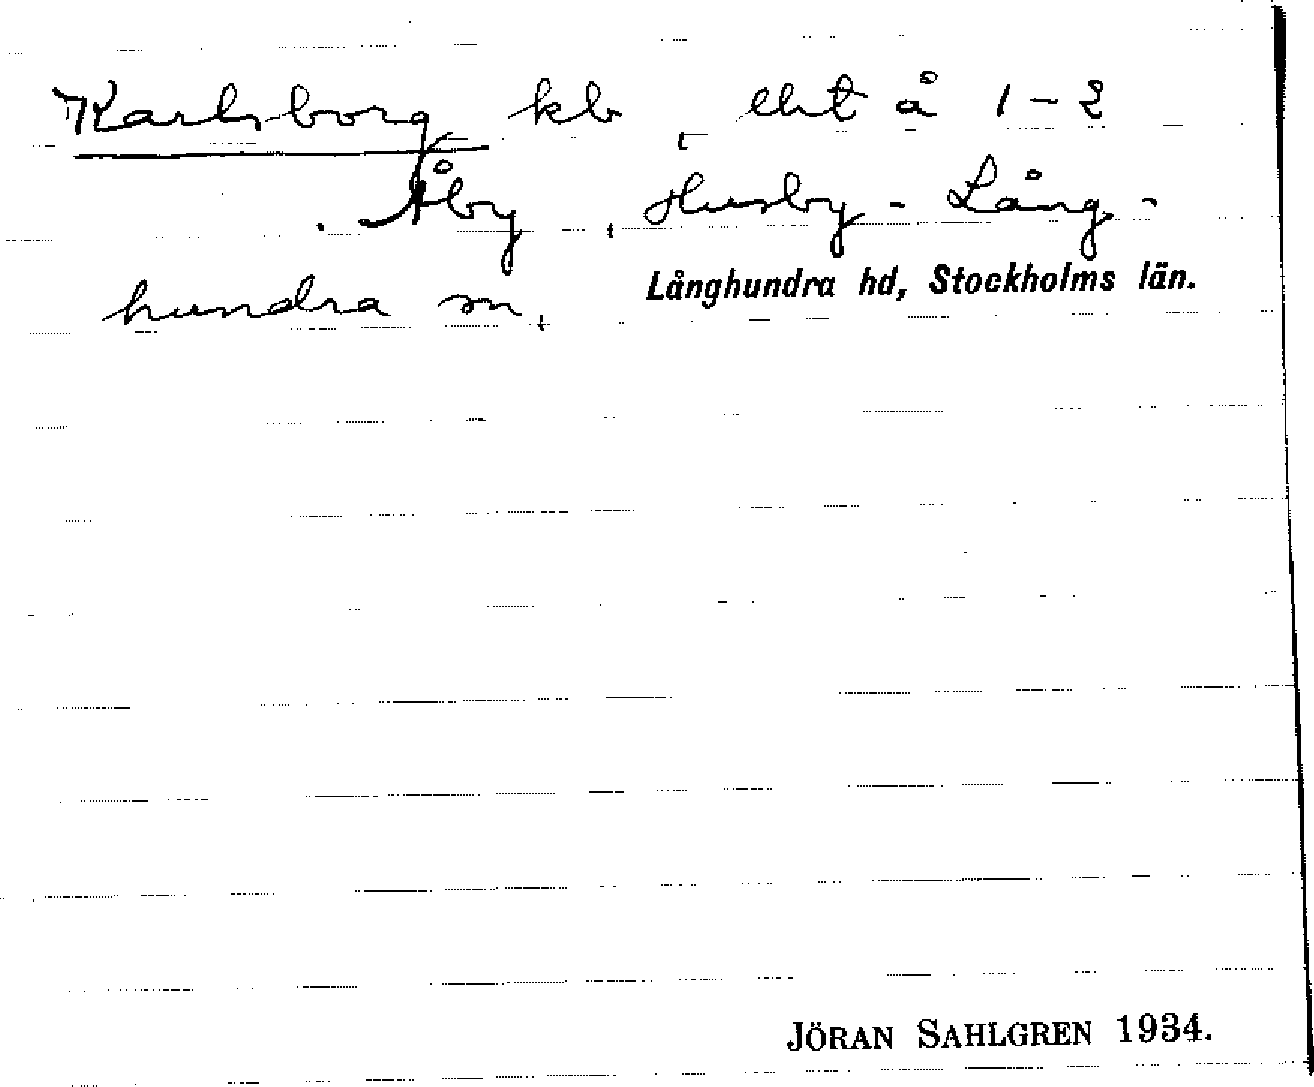 Karlsborg, kb, lht å 1–2
Åby, Husby-Lång-
hundra sn,
Långhundra hd, Stockholms län.
JÖRAN SAHLGREN 1934.